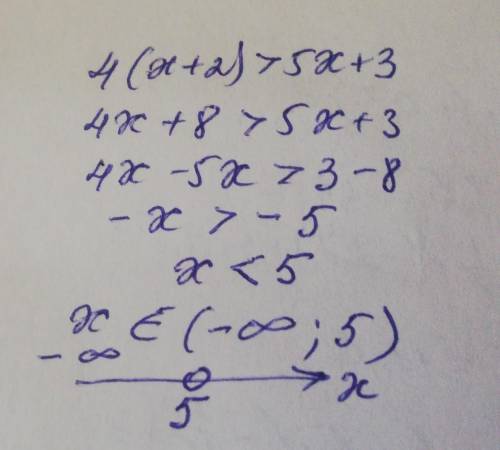 4(x+2)>5x+3
4x+8>5x+3
4x-5x>3-8
-x>-5
x<5
x∈(-∞;5)
-∞
5
x